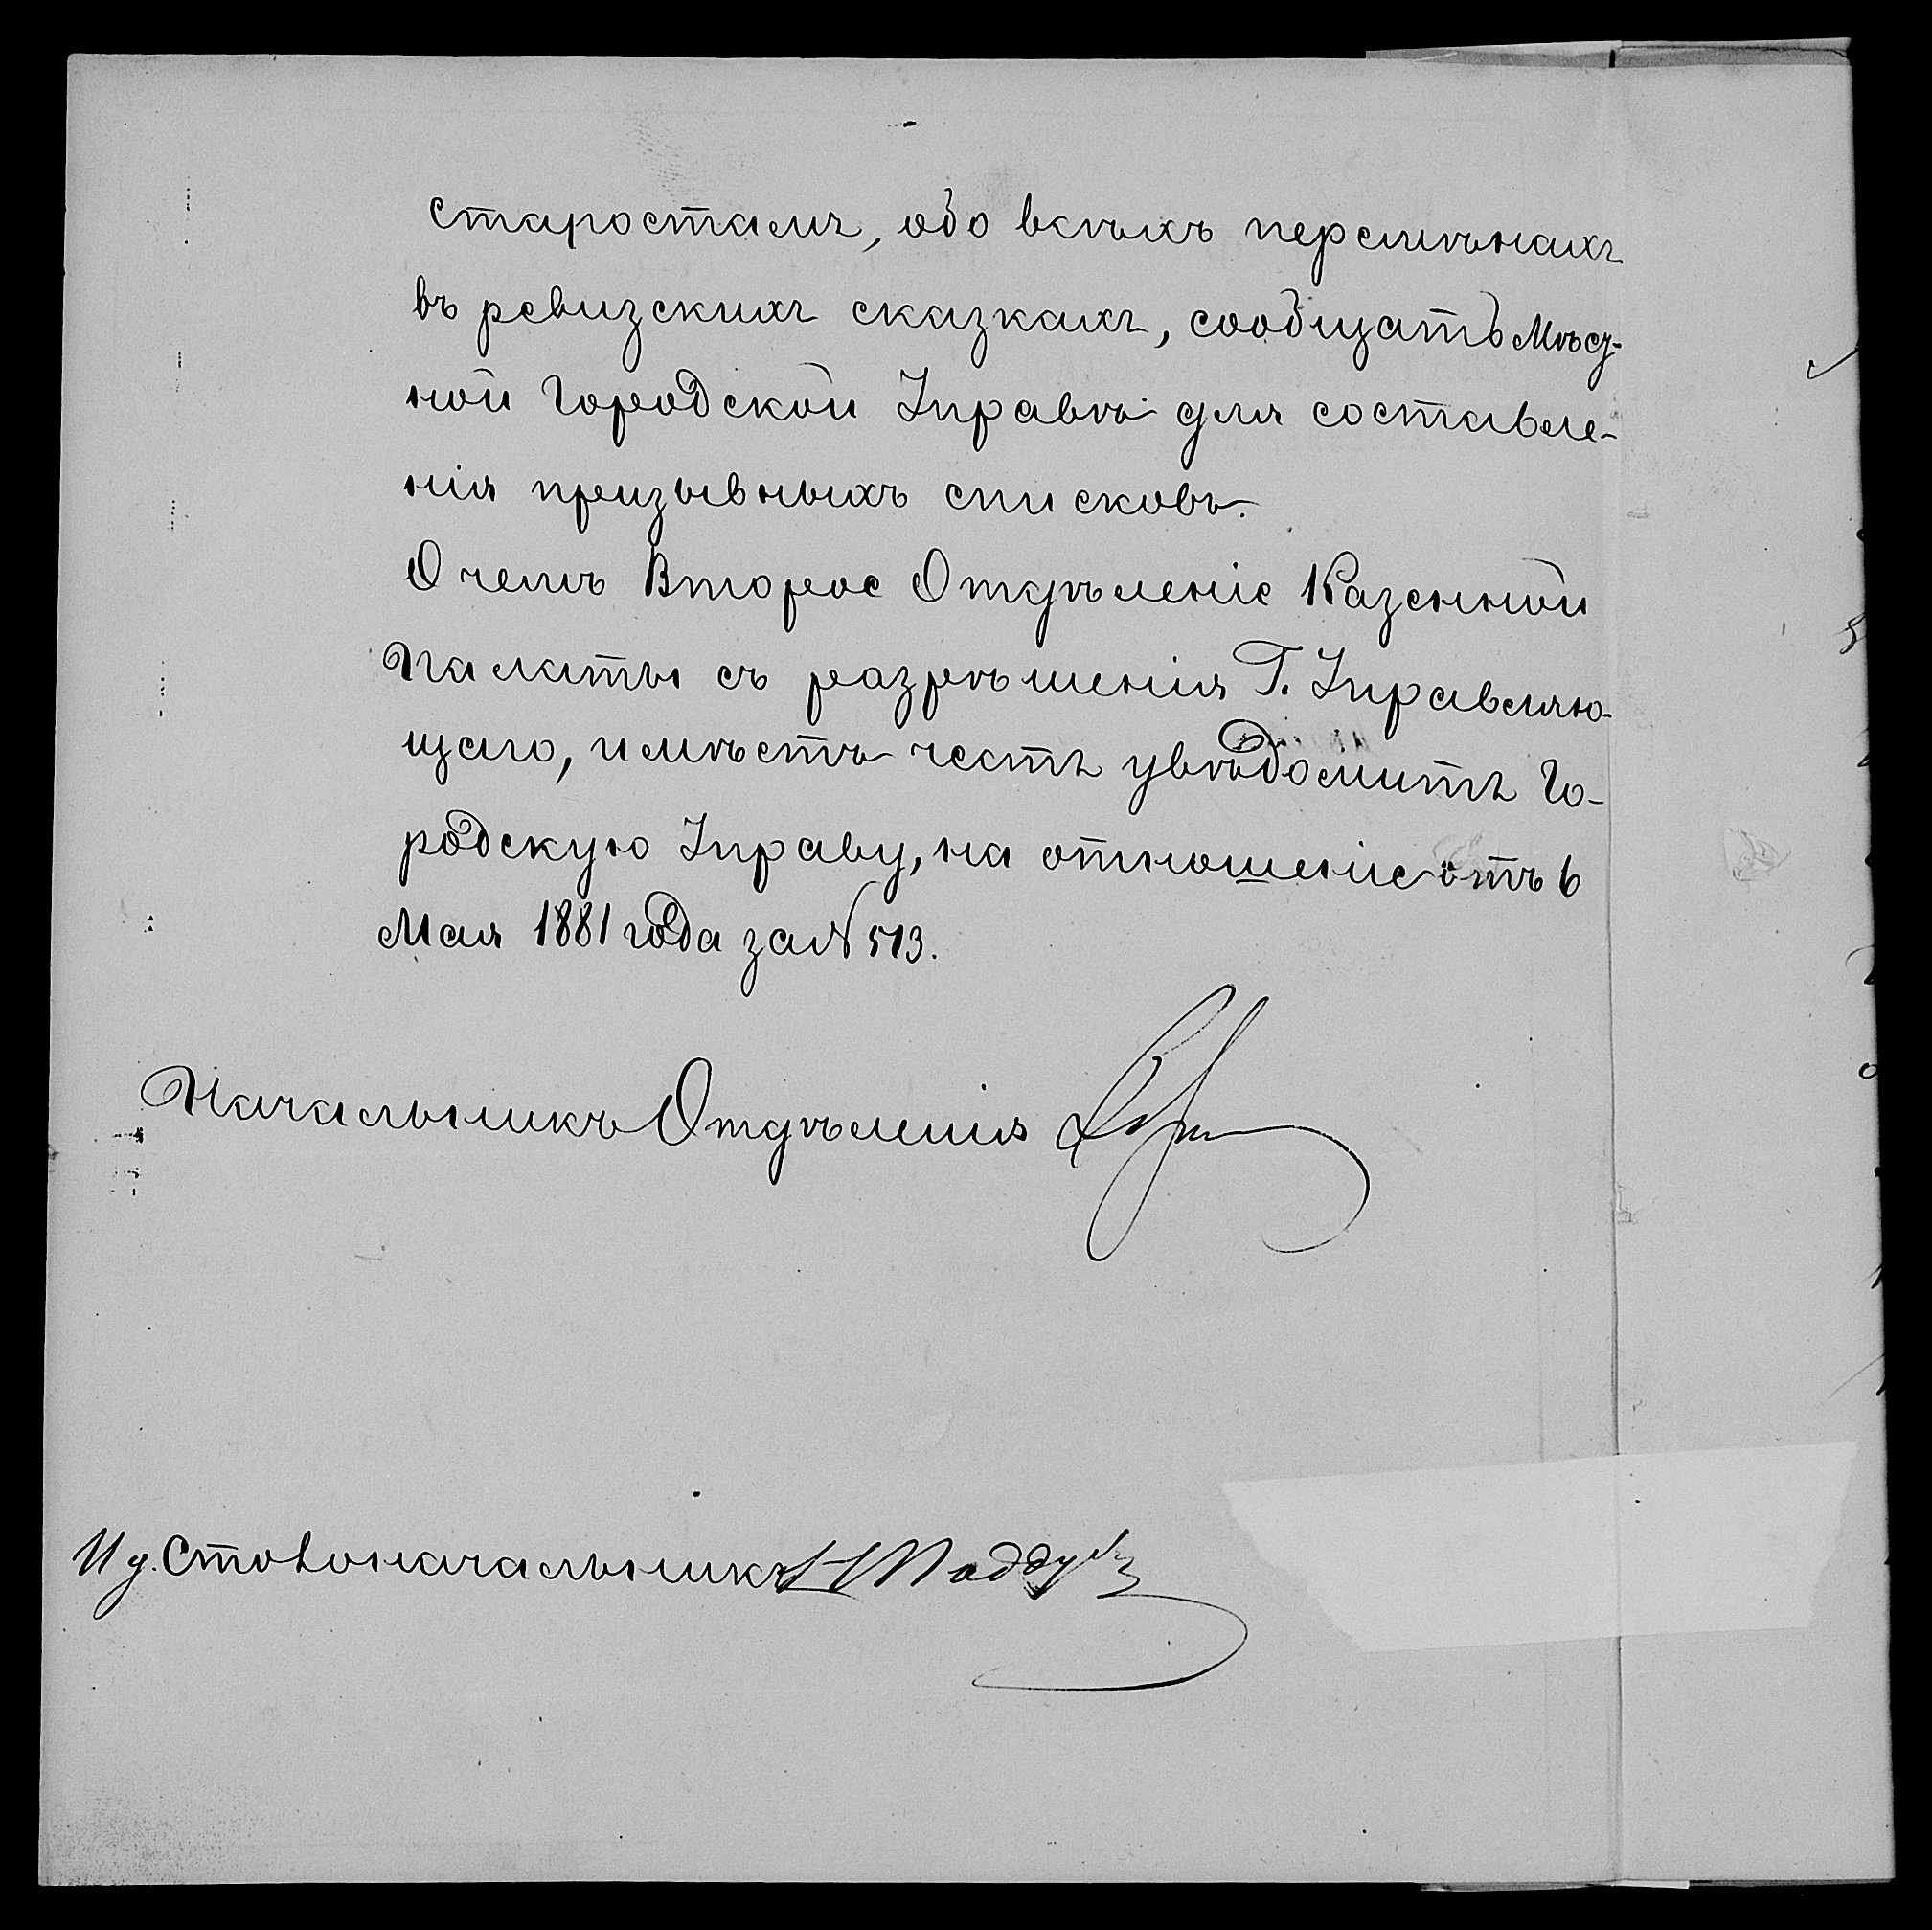 старостамъ, обо всѣхъ перемѣнахъ
въ ревизскихъ сказкахъ, сообщать Мѣст-
ной Городской Управѣ для составле-
нія призывныхъ списковъ.
О чемъ Второе Отдѣленіе Казенной
Палаты съ разрѣшенія Г. Управляю-
щаго, имѣетъ честь увѣдомить Го-
родскую Управу, на отношеніе отъ 6
Мая 1881 года за № 513.
Начальникъ Отдѣленія
И д. Столоначальника